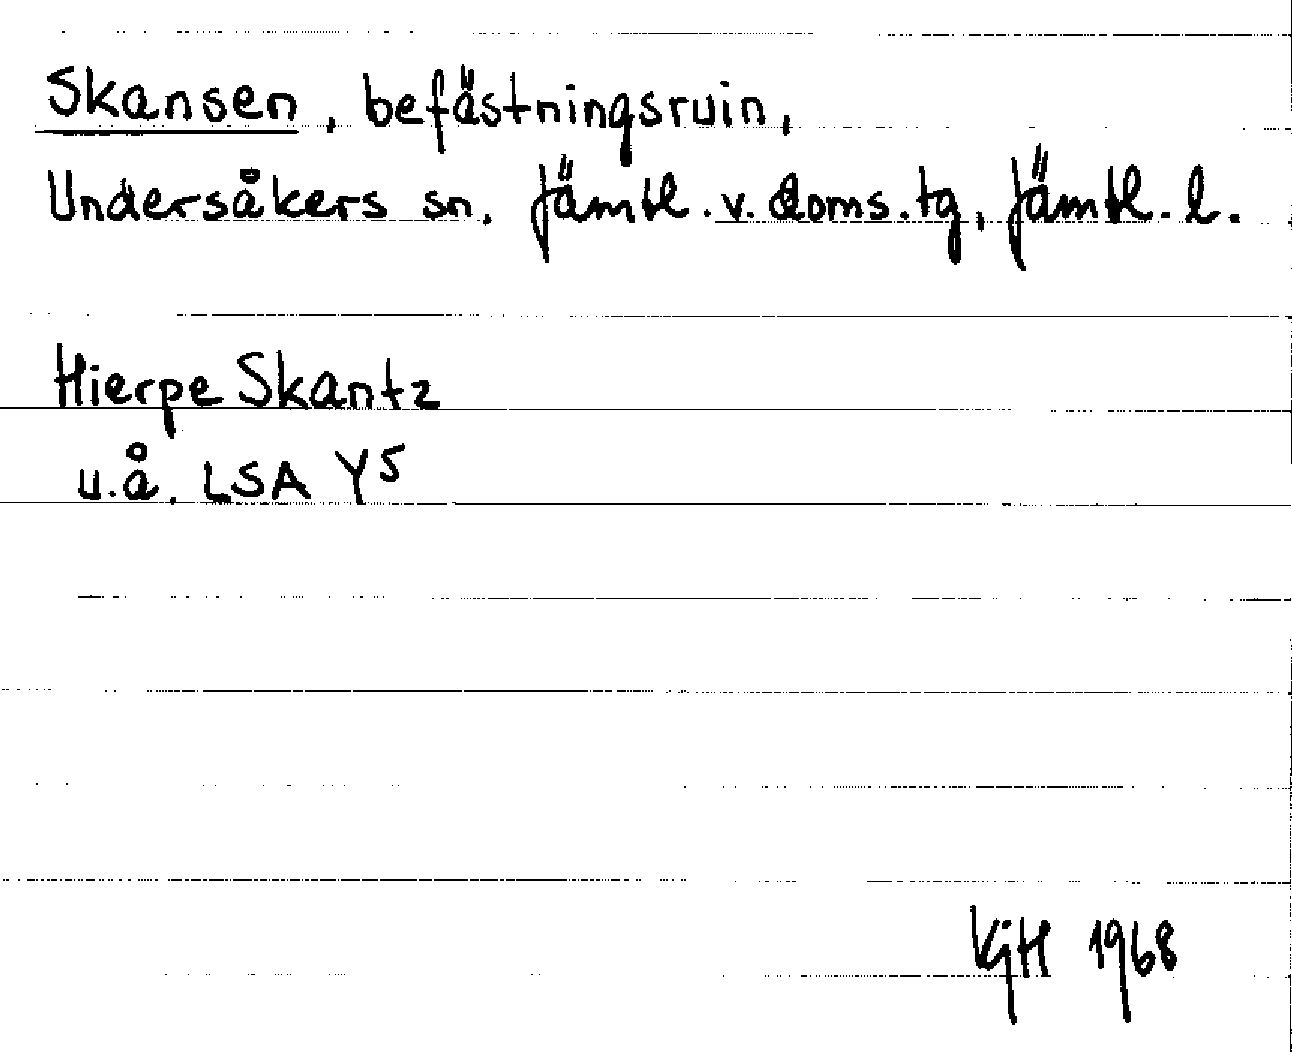 Skansen, befästningsruin,
Undersåkers sn, Jämtl. v. doms. tg, Jämtl. l.
Hierpe Skantz
u.å. LSA Y5
KjH 1968